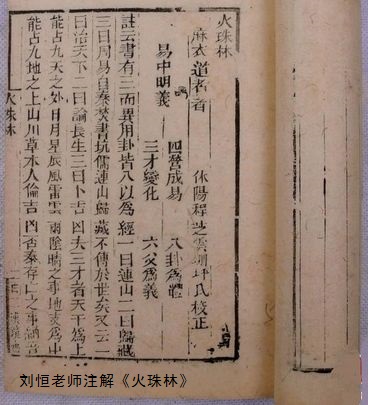 火珠林
麻衣道者著 休陽程芝雲 坪氏校正
易中明義
四營成易 八卦為體
三才變化 六爻為義
註云書有三而異用卦皆八以為經一曰連山二曰歸藏
三曰周易自秦焚書坑儒連山歸藏不傳於世矣又云一
曰治天下二曰論長生三曰卜吉凶夫三才者天為上
能占九天之外日月星辰風雷雲雨陰晴之事地 為中
能占九地之上山川草木人倫吉凶否泰存亡之事
火珠林
刘恒老师注解《火珠林》